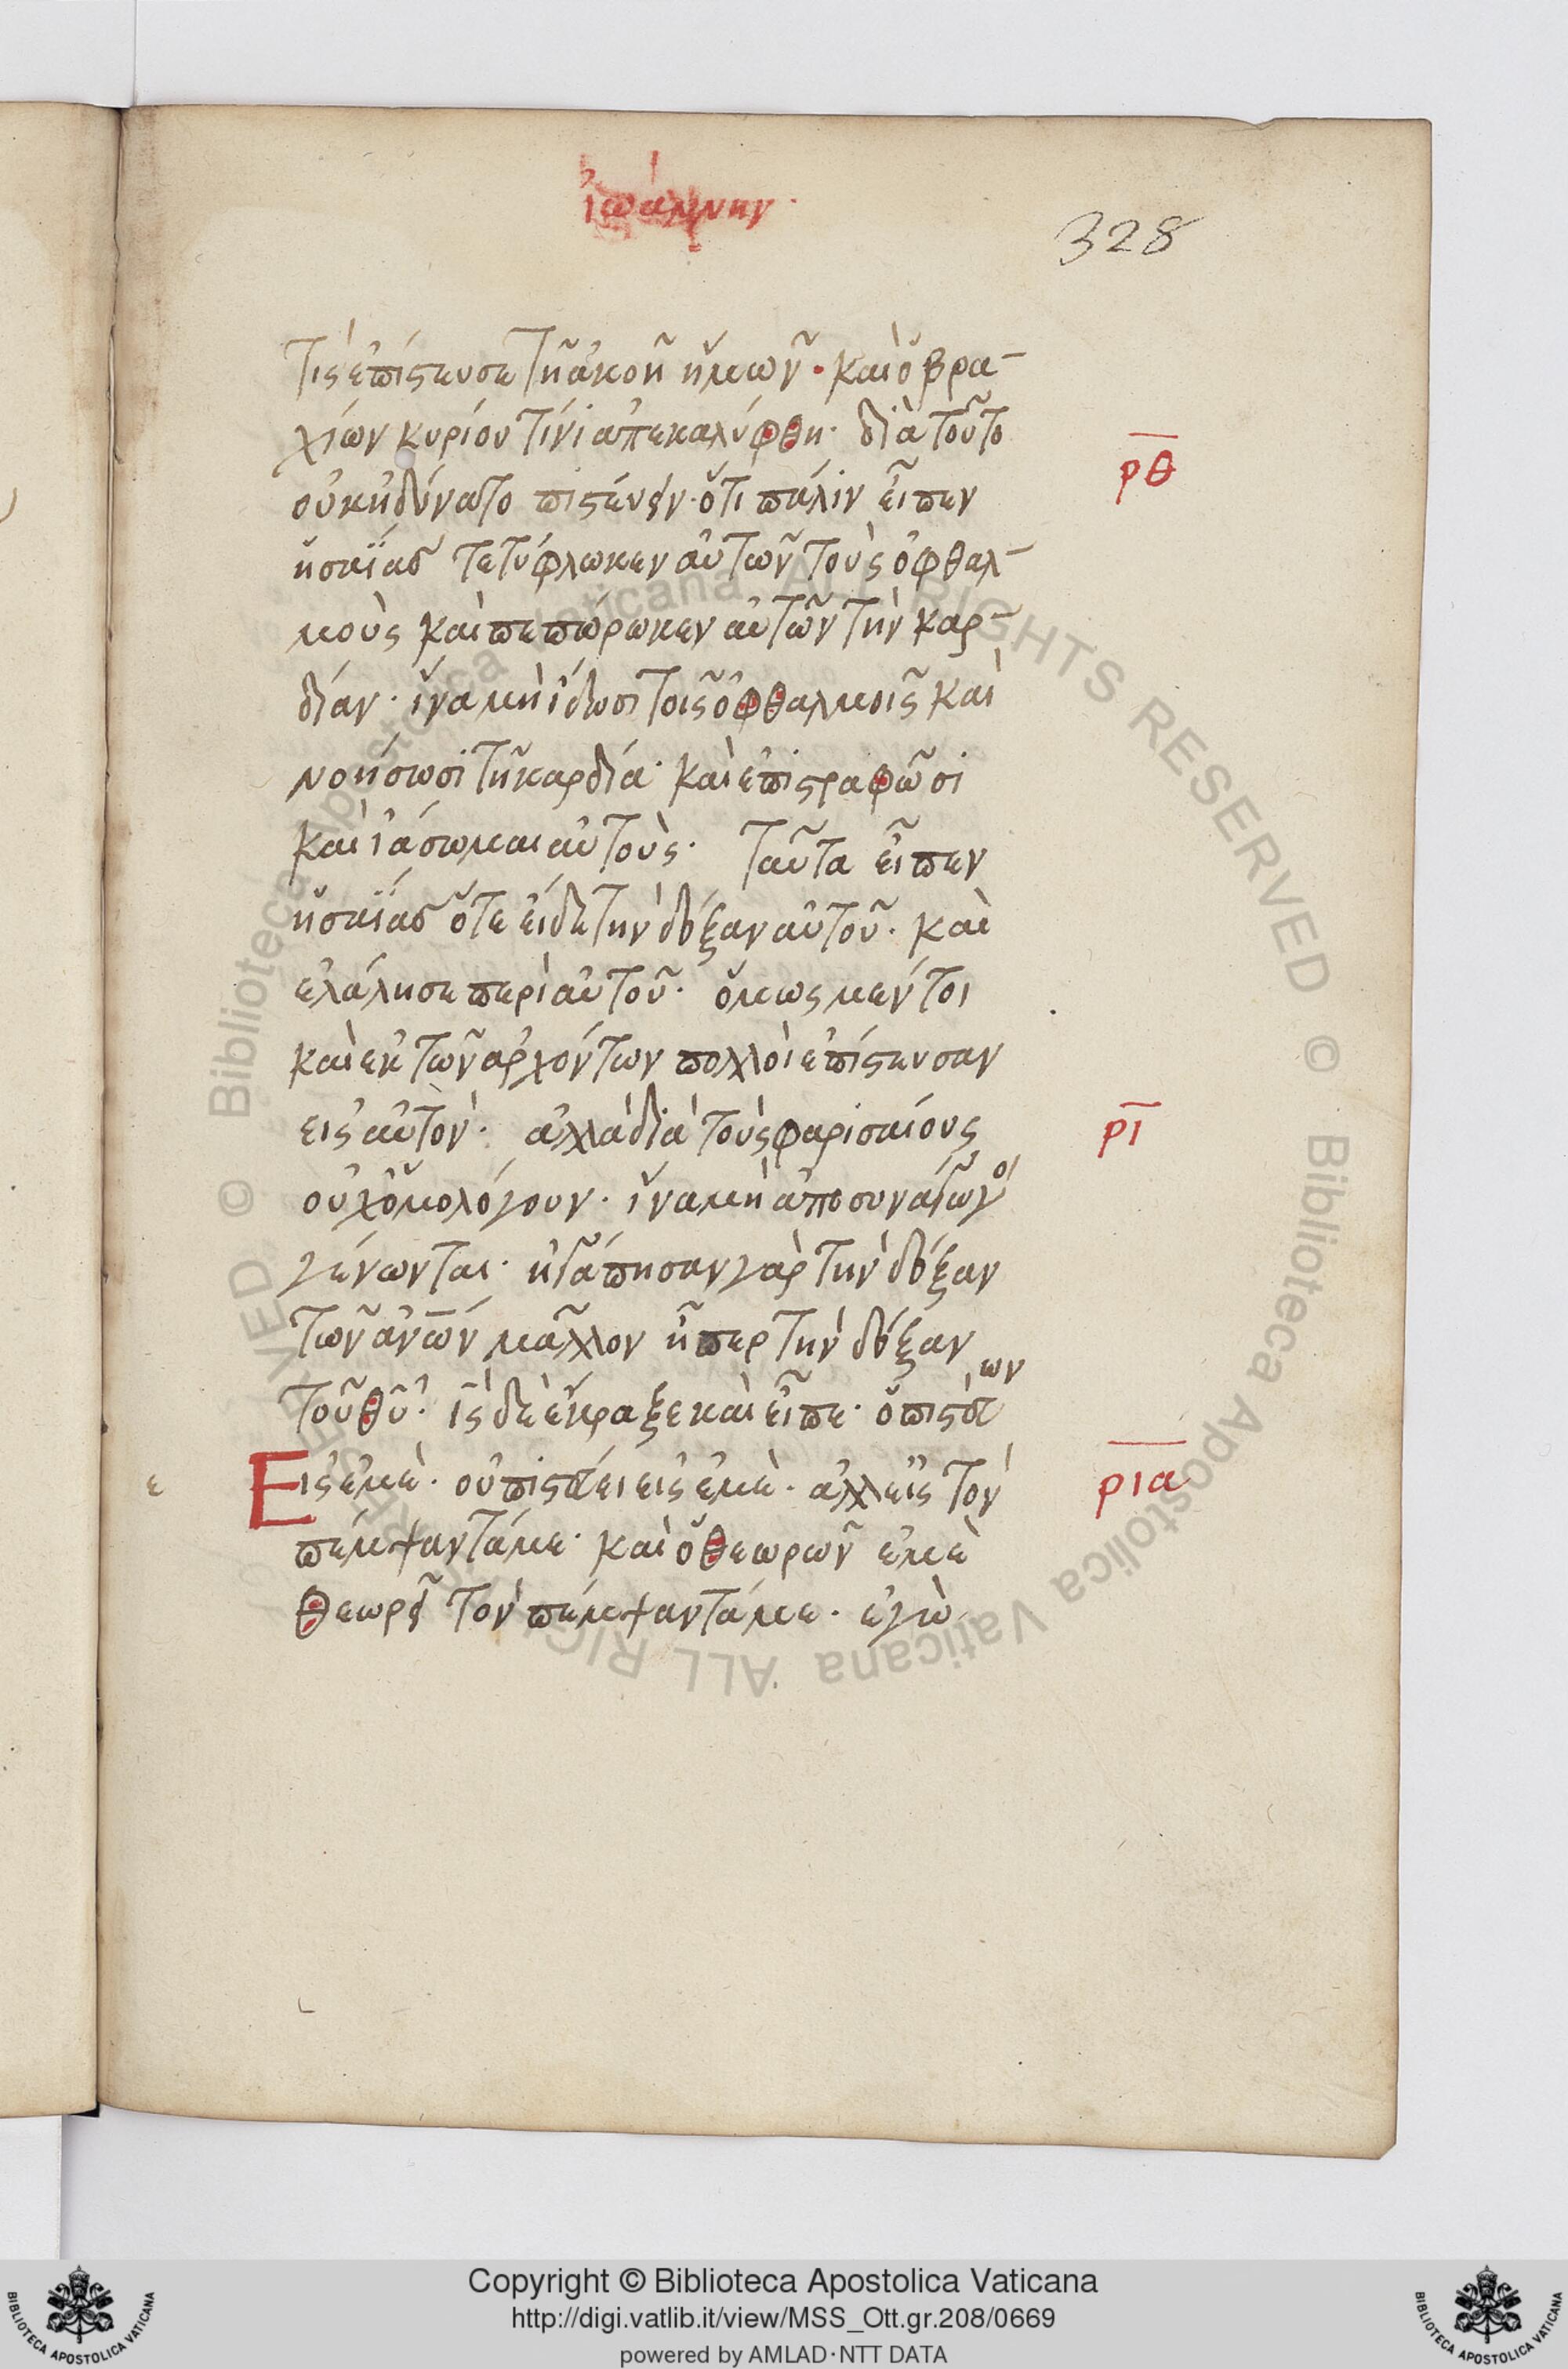 ἰωάννην·
328
Τίς ἐπίστευσε τῆ ἀκοῆ ἡμῶν · καὶ ὁ βρα-
χίων κυρίου τίνι ἀπεκαλύφθη· διὰ τοῦτο
ρθ
οὐκ ἠδύναντο πιστεύειν· ὅτι πάλιν εἶπεν
ἠσαΐας τετύφλωκεν αὐτῶν τοὺς ὀφθαλ-
μοὺς καὶ πεπώρωκεν αὐτῶν τὴν καρ-
δίαν· ἵνα μὴ ἴδωσι τοῖς ὀφθαλμοῖς καὶ
νοήσωσι τῆ καρδία· καὶ ἐπιστραφῶσι
καὶ ἰάσωμαι αὐτοὺς· Ταῦτα εἶπεν
ἠσαΐας ὅτε εἶδε τὴν δόξαν αὐτοῦ· καὶ
ἐλάλησε περὶ αὐτοῦ· ὅμως μέντοι
καὶ ἐκ τῶν ἀρχόντων πολλοὶ ἐπίστευσαν
εἰς αὐτὸν· ἀλλὰ διὰ τοὺς φαρισαίους
ρι
οὐχ ὡμολόγουν· ἵνα μὴ ἀποσυνάγωγοι
γένωνται· ἠγάπησαν γὰρ τὴν δόξαν
τῶν ἀνων μᾶλλον ἤπερ τὴν δόξαν
τοῦ θυ· ις δὲ ἔκραξε καὶ εἶπε· ὁ πιστεύων
ε
Εἰς ἐμὲ· οὐ πιστεύει εἰς ἐμὲ· ἀλλ' εἰς τὸν
ρια
πέμψαντά με· καὶ ὁ θεωρῶν ἐμὲ
θεωρεῖ τὸν πέμψαντά με· ἐγὼ
© Biblioteca Apostolica Vaticana ALL RIGHTS RESERVED © Biblioteca Apostolica Vaticana ALL RIGHTS RESERVED
BIBLIOTECA APOSTOLICA VATICANA
Copyright © Biblioteca Apostolica Vaticana
http://digi.vatlib.it/view/MSS_Ott.gr.208/0669
powered by AMLAD·NTT DATA
BIBLIOTECA APOSTOLICA VATICANA